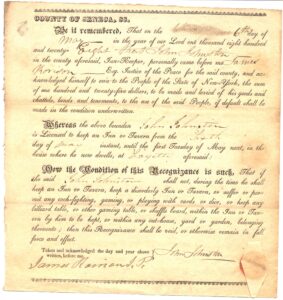 COUNTY OF SENECA, SS.
Be it remembered, That on the 6th day of
May in the year of our Lord one thousand eight hundred
and twenty-Eight that John Johnston
in the county aforesaid, Inn-Keeper, personally came before me James
Esq. Justice of the Peace for the said county, and ac-
knowledged himself to owe to the People of the State of New-York, the sum
of one hundred and twenty-five dollars, to be made and levied of his goods and
chattels, lands and tenements, to the use of the said People, if default shall be
made in the condition underwritten.
Whereas the above bounden John Johnston
is Licensed to keep an Inn or Tavern from the
day of May instant, until the first Tuesday of May next, in the
house where he now dwells, at Fayette aforesaid.
Now the Condition of this Recognizance is such, That if
the said John Johnston shall not, during the time he shall
keep an Inn or Tavern, keep a disorderly Inn or Tavern, or suffer or per-
mit any cock-fighting, gaming, or playing with cards or dice, or keep any
billiard table, or other gaming table, or shuffle board, within the Inn or Tav-
ern by him to be kept, or within any out-house, yard or garden, belonging
thereunto; then this Recognizance shall be void, or otherwise remain in full
force and effect.
Taken and acknowledged the day and year above
written, before me, John Johnston
James